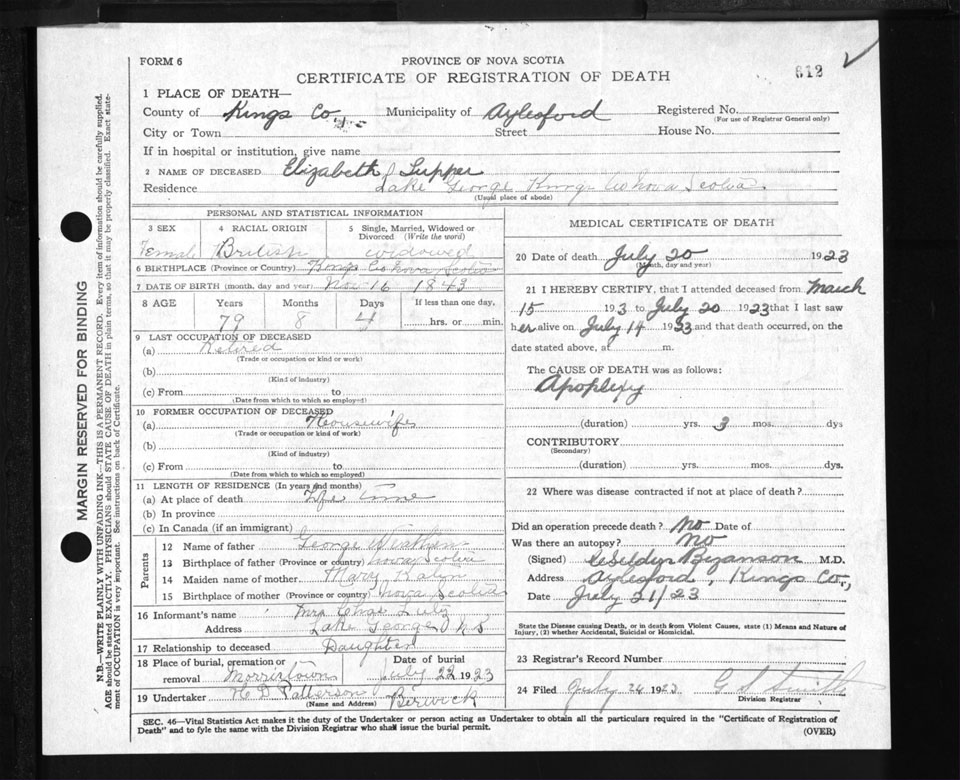 FORM 6
PROVINCE OF NOVA SCOTIA
CERTIFICATE OF REGISTRATION OF DEATH
612
1 PLACE OF DEATH—
County of Kings Co Municipality of Aylesford Registered No.
(For use of Registrar General only)
City or Town Street House No.
If in hospital or institution, give name
2 NAME OF DECEASED Elizabeth Tupper
Residence Lake George Kings Co Nova Scotia
(Usual place of abode)
PERSONAL AND STATISTICAL INFORMATION
3 SEX 4 RACIAL ORIGIN 5 Single, Married, Widowed or Divorced (Write the word)
Female British widowed
6 BIRTHPLACE (Province or Country) Kings Co Nova Scotia
7 DATE OF BIRTH (month, day and year) Nov 16 1843
8 AGE Years Months Days If less than one day,
79 8 4 hrs. or min.
9 LAST OCCUPATION OF DECEASED
(a) Retired
(Trade or occupation or kind or work)
(b)
(Kind of industry)
(c) From to
(Date from which to which so employed)
10 FORMER OCCUPATION OF DECEASED
(a) Housewife
(Trade or occupation or kind of work)
(b)
(Kind of industry)
(c) From to
(Date from which to which so employed)
11 LENGTH OF RESIDENCE (In years and months)
(a) At place of death Life time
(b) In province
(c) In Canada (if an immigrant)
Parents
12 Name of father George
13 Birthplace of father (Province or country) Nova Scotia
14 Maiden name of mother Mary
15 Birthplace of mother (Province or country) Nova Scotia
16 Informant's name Mrs Chas Lutz
Address Lake George N S
17 Relationship to deceased Daughter
18 Place of burial, cremation or removal Morristown Date of burial July 22 1923
19 Undertaker H D Patterson Berwick
(Name and Address)
MEDICAL CERTIFICATE OF DEATH
20 Date of death July 20 1923
(Month, day and year)
21 I HEREBY CERTIFY, that I attended deceased from March
15 193 to July 20 1923 that I last saw
her alive on July 14 1923 and that death occurred, on the
date stated above, at m.
The CAUSE OF DEATH was as follows:
Apoplexy
(duration) yrs. 3 mos. dys
CONTRIBUTORY
(Secondary)
(duration) yrs. mos. dys.
22 Where was disease contracted if not at place of death?
Did an operation precede death? No Date of
Was there an autopsy? No
(Signed) M.D.
Address Aylesford, Kings Co,
Date July 21/23
State the Disease causing Death, or in death from Violent Causes, state (1) Means and Nature of
Injury, (2) whether Accidental, Suicidal or Homicidal.
23 Registrar's Record Number
24 Filed July 24 1923 G Smith
Division Registrar
SEC. 46—Vital Statistics Act makes it the duty of the Undertaker or person acting as Undertaker to obtain all the particulars required in the "Certificate of Registration of
Death" and to fyle the same with the Division Registrar who shall issue the burial permit.
(OVER)
MARGIN RESERVED FOR BINDING
N.B.—WRITE PLAINLY WITH UNFADING INK—THIS IS A PERMANENT RECORD. Every item of information should be carefully supplied.
AGE should be stated EXACTLY. PHYSICIANS should STATE CAUSE OF DEATH in plain terms, so that it may be properly classified. Exact state-
ment of OCCUPATION is very important. See instructions on back of Certificate.